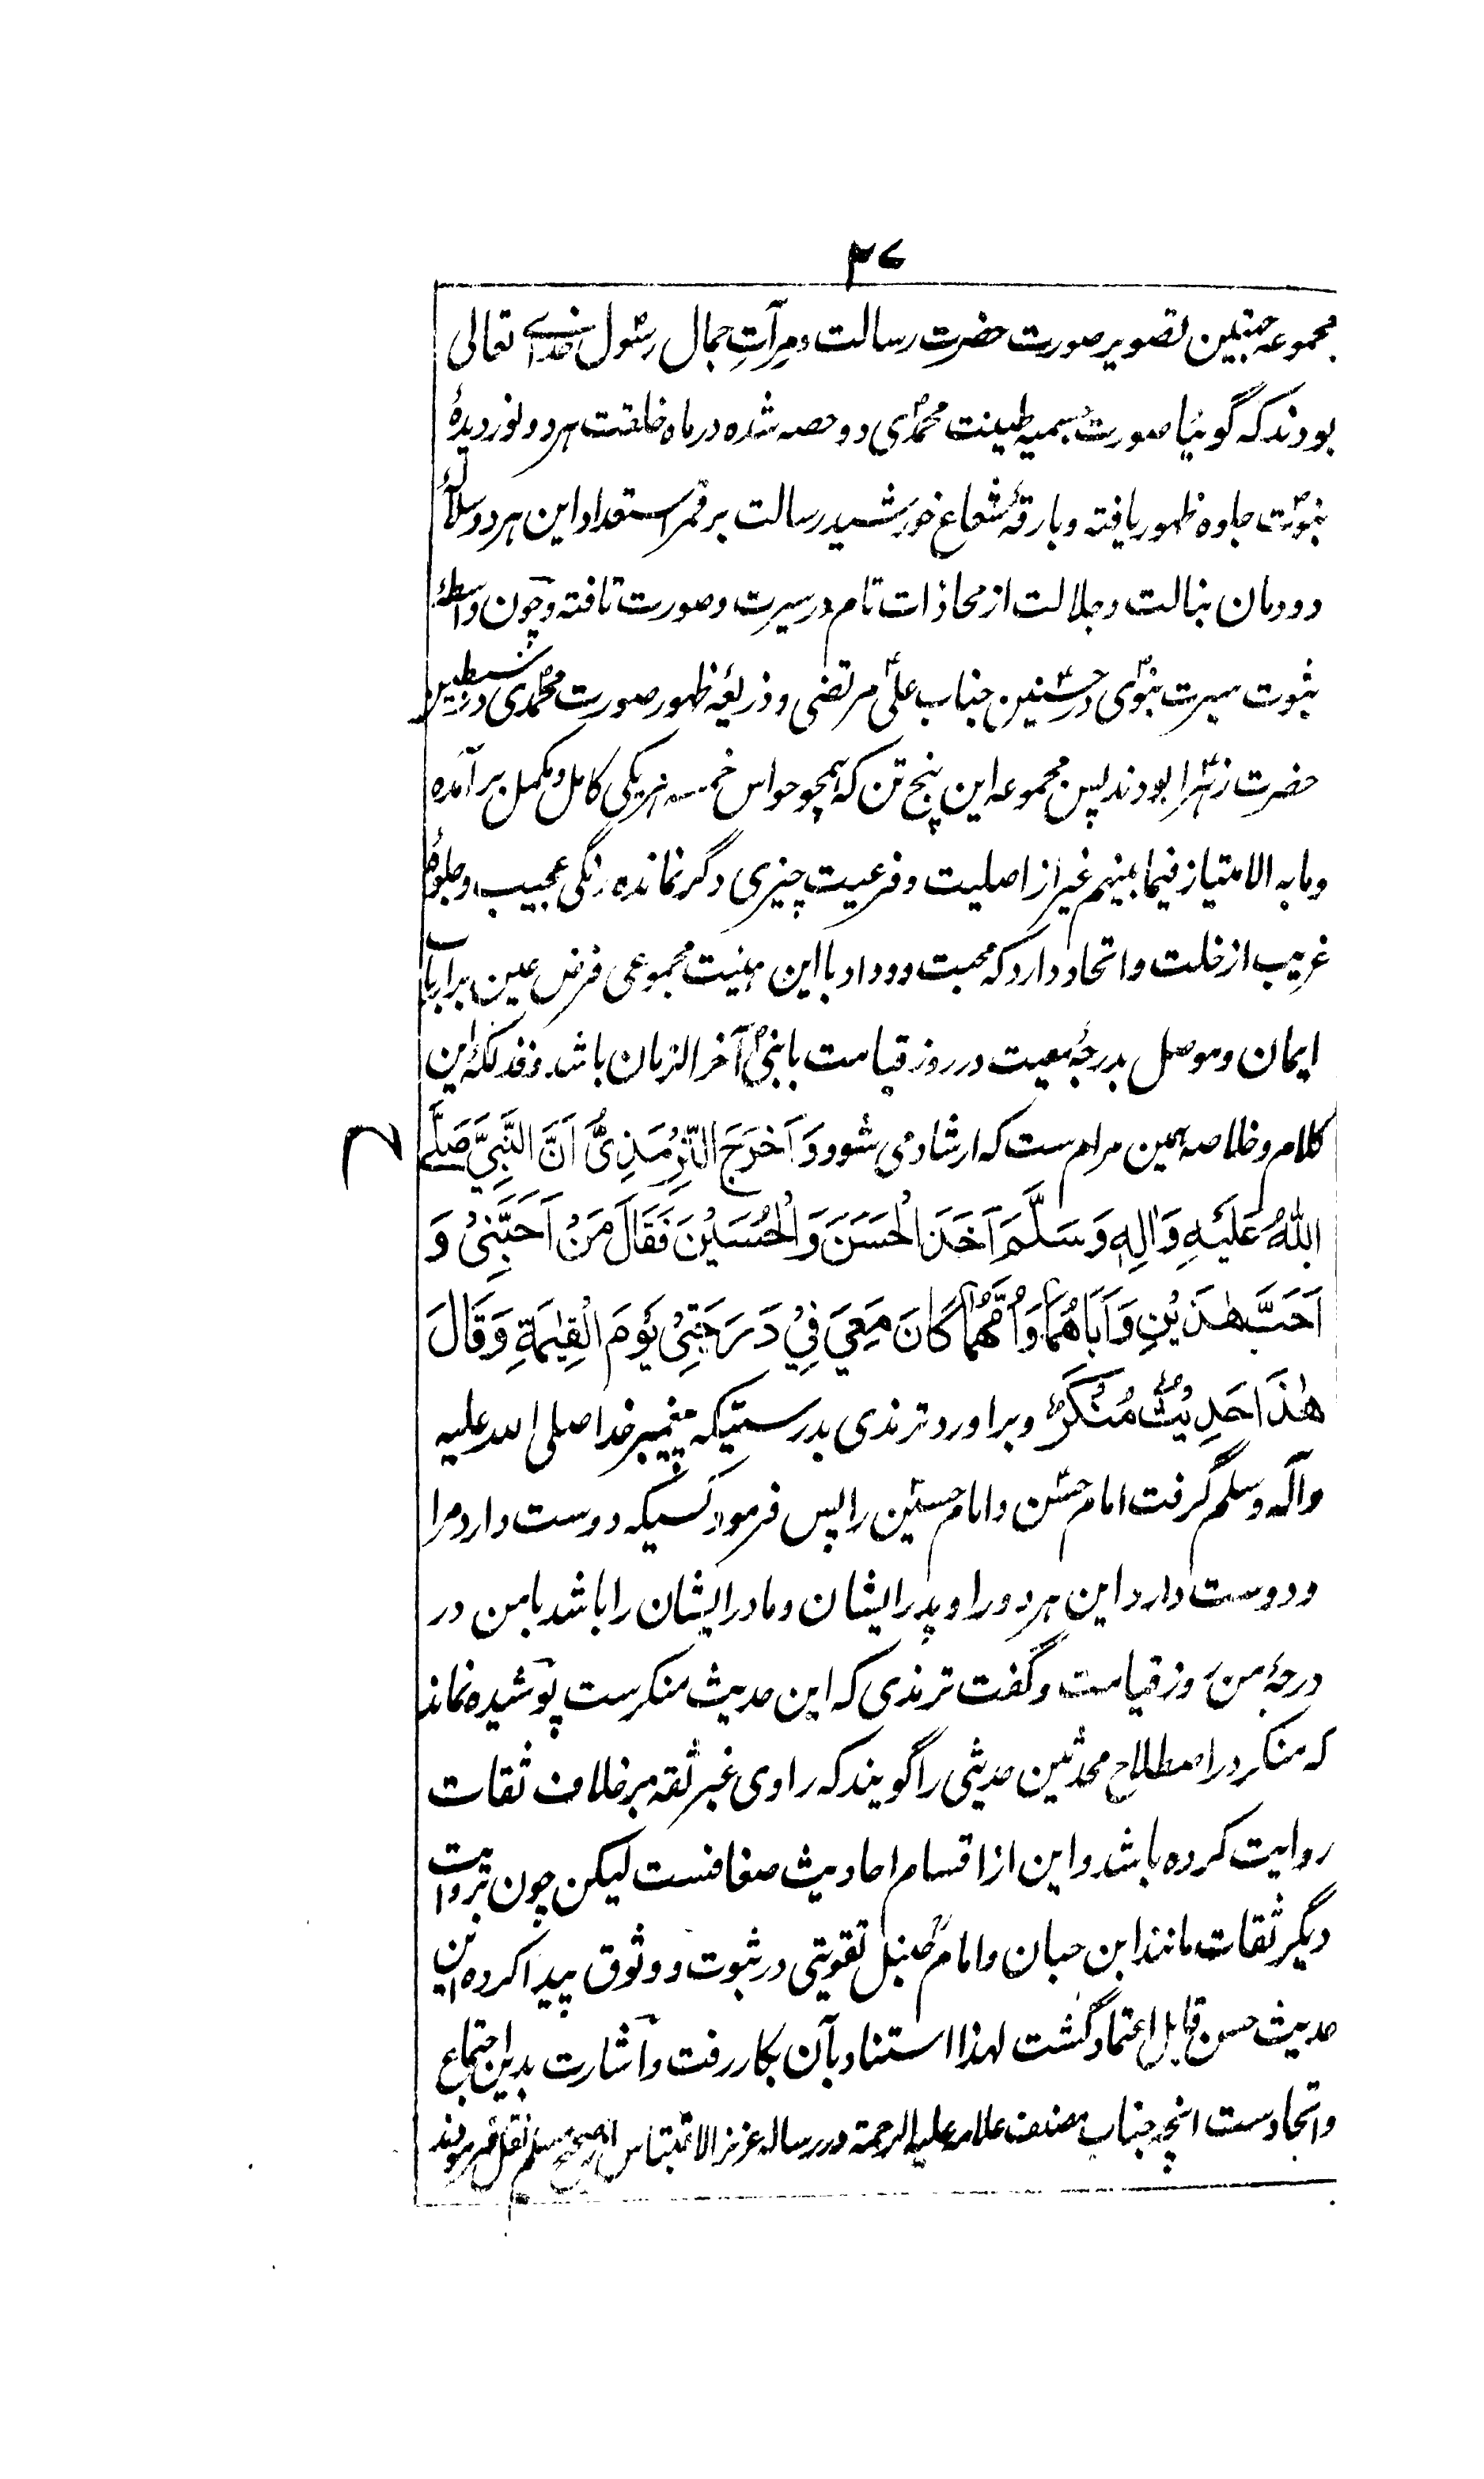 ۳۷
مجموعه حسنین تصویر صورت حضرت رسالت و مرآتِ جمال رسول خدای تعالی
بودند که گوئیا صورت جسمیه طینت محمدی دو حصه شده در ماه خلقت هر دو نور دیدهٔ
نبوت جلوه ظهور یافته و بارقهٔ شعاع خورشید رسالت بر قمر استعداد این هر دو سلالهٔ
دودمان بنالت و جلالت از محاذات تام در سیرت و صورت تافته و چون واسطهٔ
ثبوت سیرت نبوی در حسنین جناب علی مرتضی و ذریعهٔ ظهور صورت محمدی در سبطین
حضرت زهرا بودند پس مجموعه این پنج تن که همچو حواس خمسه هر یکی کامل و مکمل برآمده
و مابه الامتیاز فیما بینهم غیر از اصلیت و فرعیت چیزی دگر نمانده رنگی عجیب و جلوهٔ
غریب از خلت و اتحاد دارد که محبت و وداد با این هیئت مجموعی فرض عین بر ارباب
ایمان و موصل بدرجهٔ معیت در روز قیامت با نبی آخر الزمان باشد و فذلکهٔ این
کلام و خلاصه همین مرام ست که ارشاد می شود وَاَخْرَجَ التِّرْمَذِیُّ اَنَّ النَّبِیَّ صَلَّی
اللّٰهُ عَلَیْهِ وَاٰلِهٖ وَسَلَّمَ اَخَذَ الْحَسَنَ وَالْحُسَیْنَ فَقَالَ مَنْ اَحَبَّنِیْ وَ
اَحَبَّ هٰذَیْنِ وَاَبَاهُمَا وَاُمَّهُمَا کَانَ مَعِیَ فِیْ دَرَجَتِیْ یَوْمَ الْقِیٰمَةِ وَقَالَ
هٰذَا حَدِیْثٌ مُنْکَرٌ و برآورد ترمذی بدرستیکه پیغمبر خدا صلی الله علیه
وآله وسلم گرفت امام حسن و امام حسین را پس فرمود کسیکه دوست دارد مرا
و دوست دارد این هر دو را و پدر ایشان و مادر ایشان را باشد با من در
درجهٔ من روز قیامت و گفت ترمذی که این حدیث منکرست پوشیده نماند
که منکر در اصطلاح محدثین حدیثی را گویند که راوی غیر ثقه بر خلاف ثقات
روایت کرده باشد و این از اقسام احادیث ضعافست لیکن چون بروایت
دیگر ثقات مانند ابن حبان و امام حنبل تقویتی در ثبوت و وثوق پیدا کرده این
حدیث حسن قابل اعتماد گشت لهذا استناد بآن بکار رفت و اشارت بدین اجتماع
و اتحادست انچه جناب مصنف علامه علیه الرحمة در رساله عزیز الاقتباس از صحیح مسلم نقل فرمودند